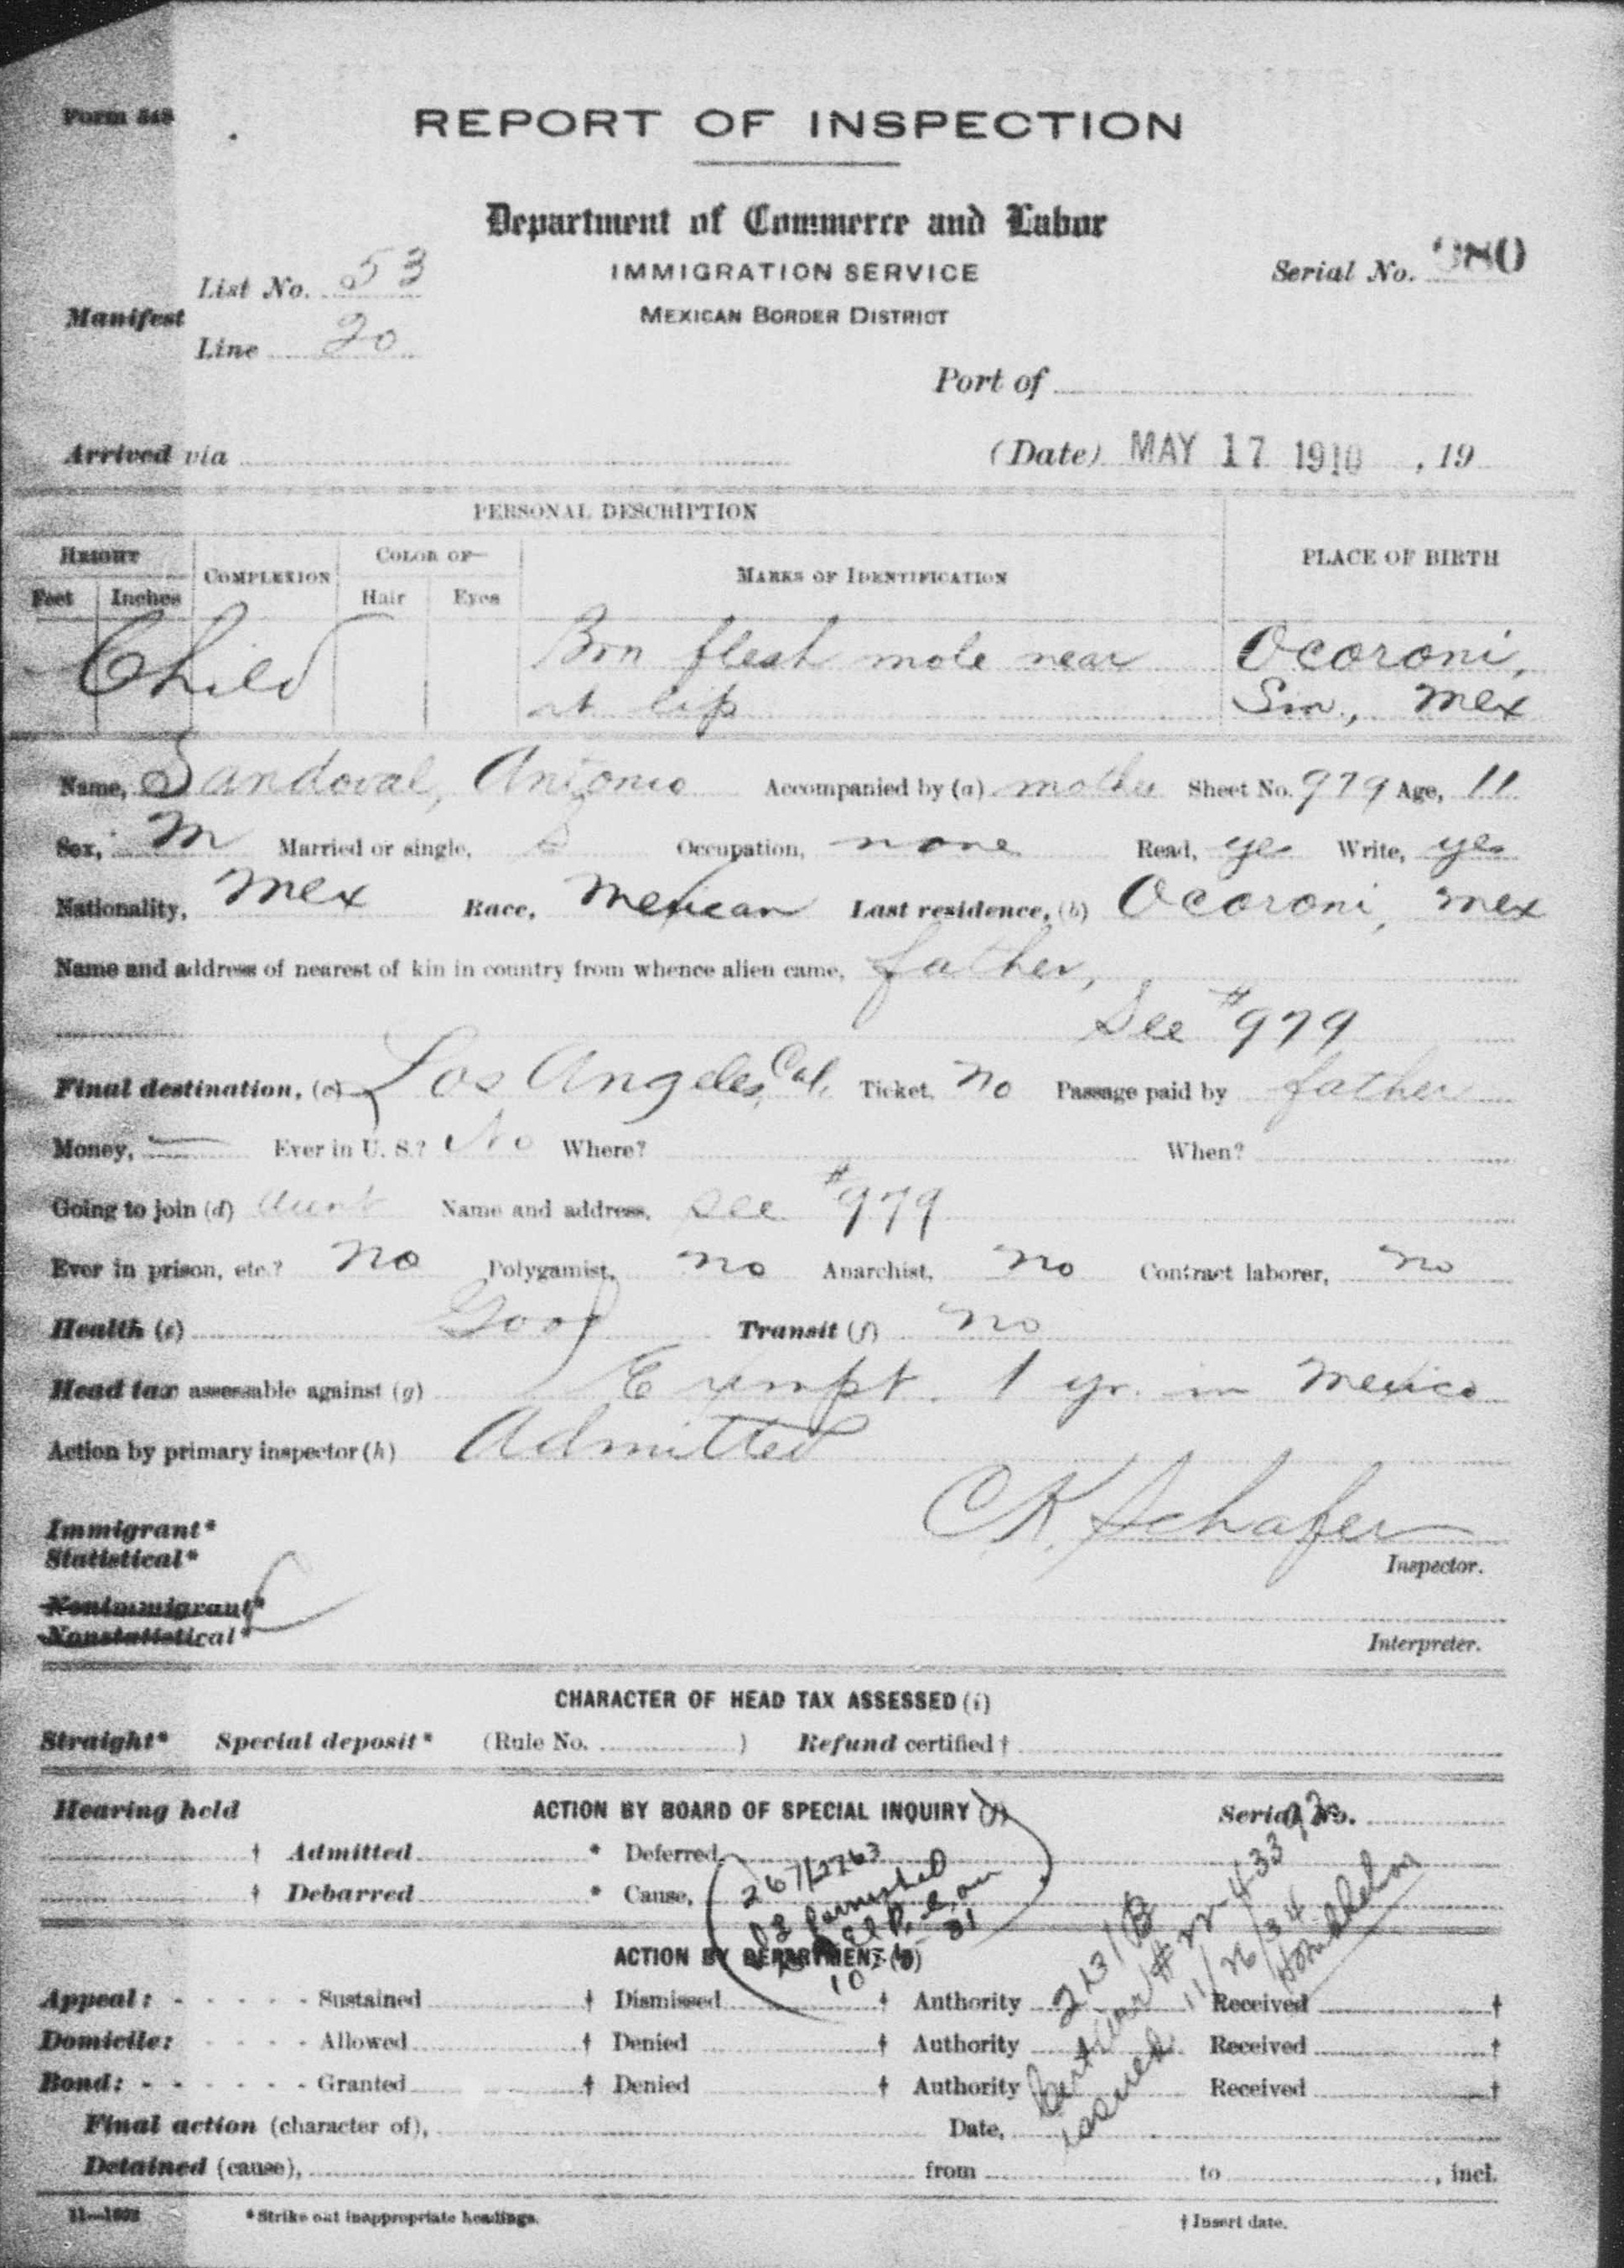 Form 548
REPORT OF INSPECTION
Department of Commerce and Labor
IMMIGRATION SERVICE
MEXICAN BORDER DISTRICT
Serial No. 980
Manifest
List No. 53
Line 20
Port of
Arrived via
(Date) MAY 17 1910 , 19
PERSONAL DESCRIPTION
HEIGHT
Feet Inches
COMPLEXION
COLOR OF—
Hair Eyes
MARKS OF IDENTIFICATION
PLACE OF BIRTH
Child
Brn flesh mole near
rt lip
Ocoroni,
Sin., Mex
Name, Sandoval, Antonio Accompanied by (a) mother Sheet No. 979 Age, 11
Sex, M Married or single, S Occupation, none Read, yes Write, yes
Nationality, Mex Race, Mexican Last residence, (b) Ocoroni, Mex
Name and address of nearest of kin in country from whence alien came, father,
See #979
Final destination, (c) Los Angeles, Cal. Ticket, No Passage paid by father
Money, — Ever in U. S.? No Where? When?
Going to join (d) Aunt Name and address, see #979
Ever in prison, etc.? No Polygamist, no Anarchist, no Contract laborer, no
Health (e) Good Transit (f) no
Head tax assessable against (g) Exempt. 1 yr. in Mexico
Action by primary inspector (h) Admitted
C.K. Schafer
Inspector.
Immigrant*
Statistical*
Nonimmigrant*
Nonstatistical*
Interpreter.
CHARACTER OF HEAD TAX ASSESSED (i)
Straight* Special deposit* (Rule No. ) Refund certified †
Hearing held ACTION BY BOARD OF SPECIAL INQUIRY (j) Serial No.
† Admitted * Deferred
† Debarred * Cause,
267/2763
furnished
ACTION BY DEPARTMENT (k)
213/B
11/26/34
issued
Appeal: - - - - - Sustained † Dismissed † Authority Received †
Domicile: - - - - Allowed † Denied † Authority Received †
Bond: - - - - - - Granted † Denied † Authority Received †
Final action (character of), Date,
Detained (cause), from to , incl.
* Strike out inappropriate headings.
† Insert date.